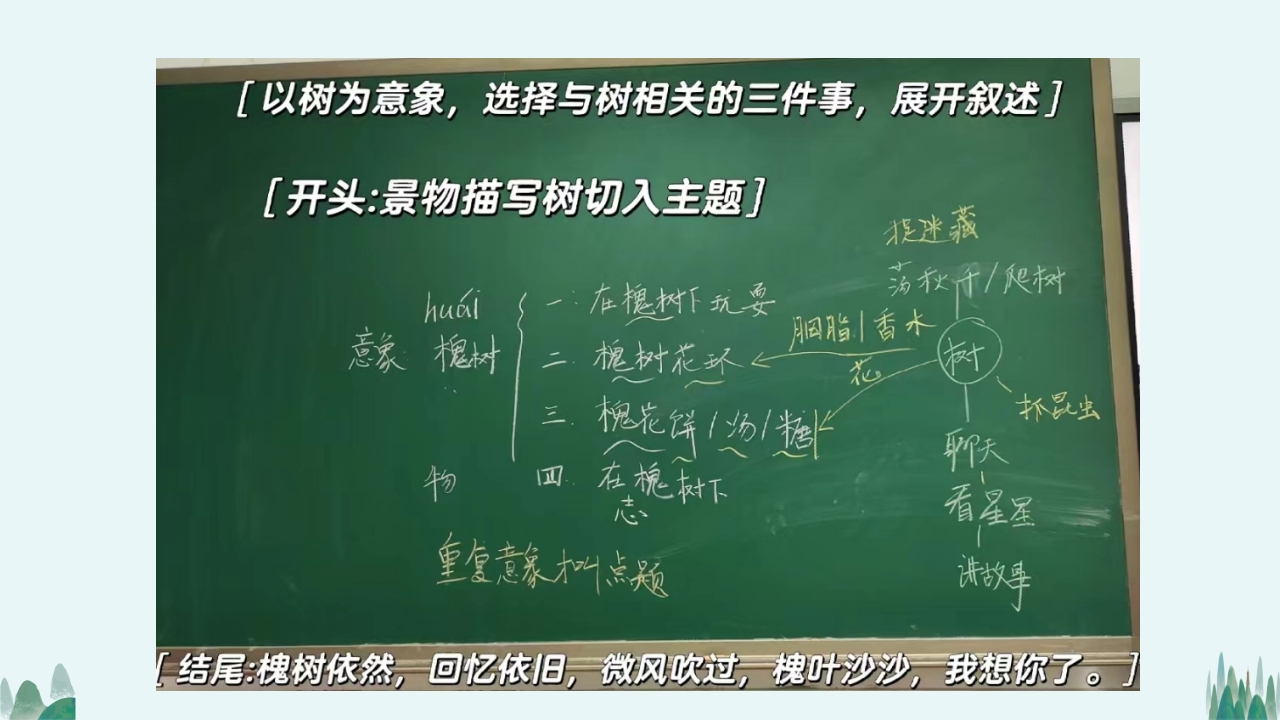 [以树为意象，选择与树相关的三件事，展开叙述]
[开头:景物描写树切入主题]
捉迷藏
荡秋千/爬树
huái
意象 槐树
一. 在槐树下玩耍
二. 槐树花环
三. 槐花饼/汤/糖
物
四. 在槐树下
志
胭脂/香水
花
树
抓昆虫
聊天
看星星
讲故事
重复意象 叫点题
[结尾:槐树依然，回忆依旧，微风吹过，槐叶沙沙，我想你了。]